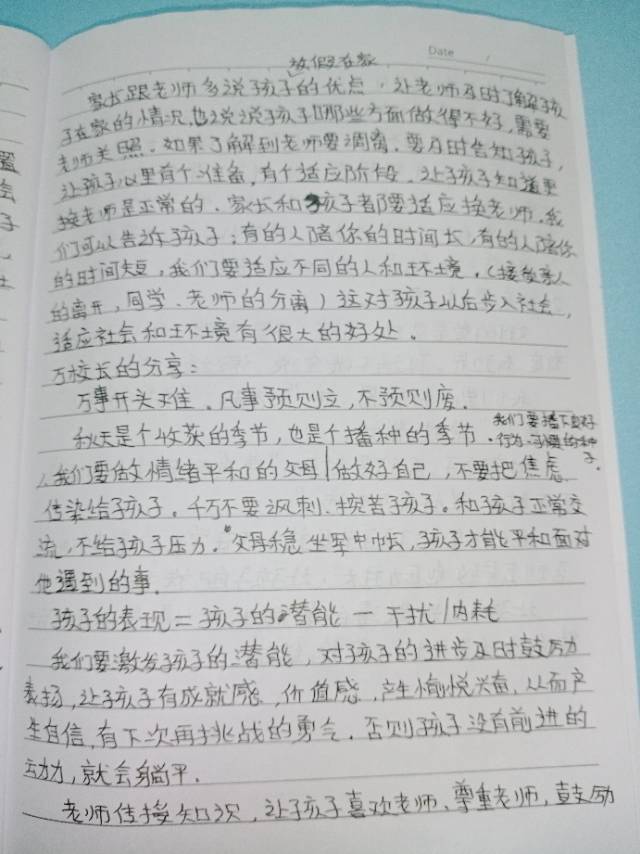 Date
放假在家
家长跟老师多说孩子的优点，让老师及时了解孩
子在家的情况，也说说孩子哪些方面做得不好，需要
老师关照。如果了解到老师要调离，要及时告知孩子，
让孩子心里有个准备，有个适应阶段。让孩子知道更
换老师是正常的。家长和孩子都要适应换老师。我
们可以告诉孩子：有的人陪你的时间长，有的人陪你
的时间短，我们要适应不同的人和环境，（接受亲人
的离开，同学、老师的分离）这对孩子以后步入社会，
适应社会和环境有很大的好处。
万校长的分享：
万事开头难。凡事预则立，不预则废。
秋天是个收获的季节，也是个播种的季节。我们要播下良好
行为、习惯的种
子。
1、我们要做情绪平和的父母，做好自己，不要把焦虑
传染给孩子。千万不要讽刺、挖苦孩子。和孩子正常交
流，不给孩子压力。父母稳坐军中帐，孩子才能平和面对
他遇到的事。
孩子的表现＝孩子的潜能－干扰/内耗
我们要激发孩子的潜能，对孩子的进步及时鼓励
表扬，让孩子有成就感、价值感，产生愉悦兴奋，从而产
生自信，有下次再挑战的勇气。否则孩子没有前进的
动力，就会躺平。
老师传授知识，让孩子喜欢老师、尊重老师，鼓励